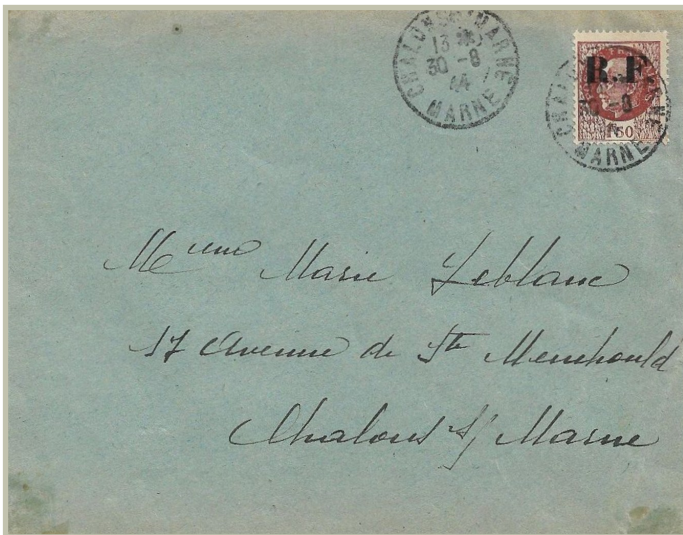 CHALONS S MARNE
13
30-8
44
MARNE
R.F.
30-8
1F50
MARNE
Mme Marie Leblanc
17 Avenue de Ste Menehould
Chalons s/ Marne